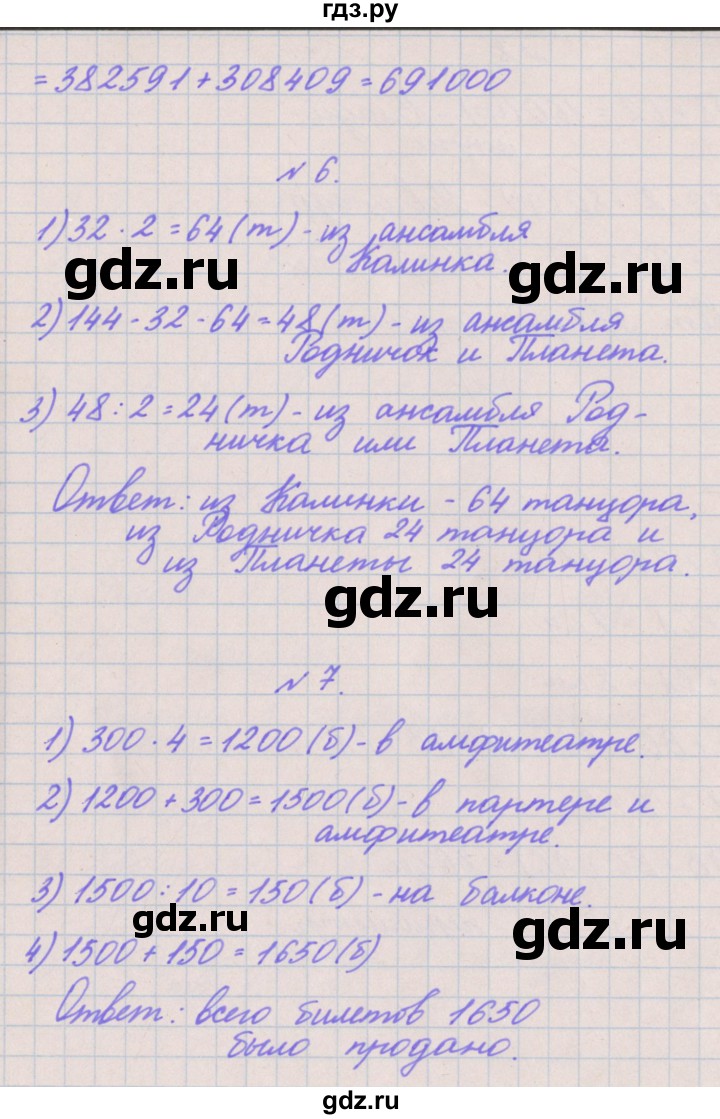 гдз.ру
= 382591 + 308409 = 691000
№ 6.
1) 32 · 2 = 64 (т) - из ансамбля
Калинка.
gdz.ru
gdz.ru
2) 144 - 32 - 64 = 48 (т) - из ансамбля
Родничок и Планета.
3) 48 : 2 = 24 (т) - из ансамбля Род-
ничка или Планета.
Ответ: из Калинки - 64 танцора,
из Родничка 24 танцора и
из Планеты 24 танцора.
gdz.ru
№ 7.
1) 300 · 4 = 1200 (б) - в амфитеатре.
2) 1200 + 300 = 1500 (б) - в партере и
амфитеатре.
3) 1500 : 10 = 150 (б) - на балконе.
gdz.ru
gdz.ru
4) 1500 + 150 = 1650 (б)
Ответ: всего билетов 1650
было продано.
gdz.ru